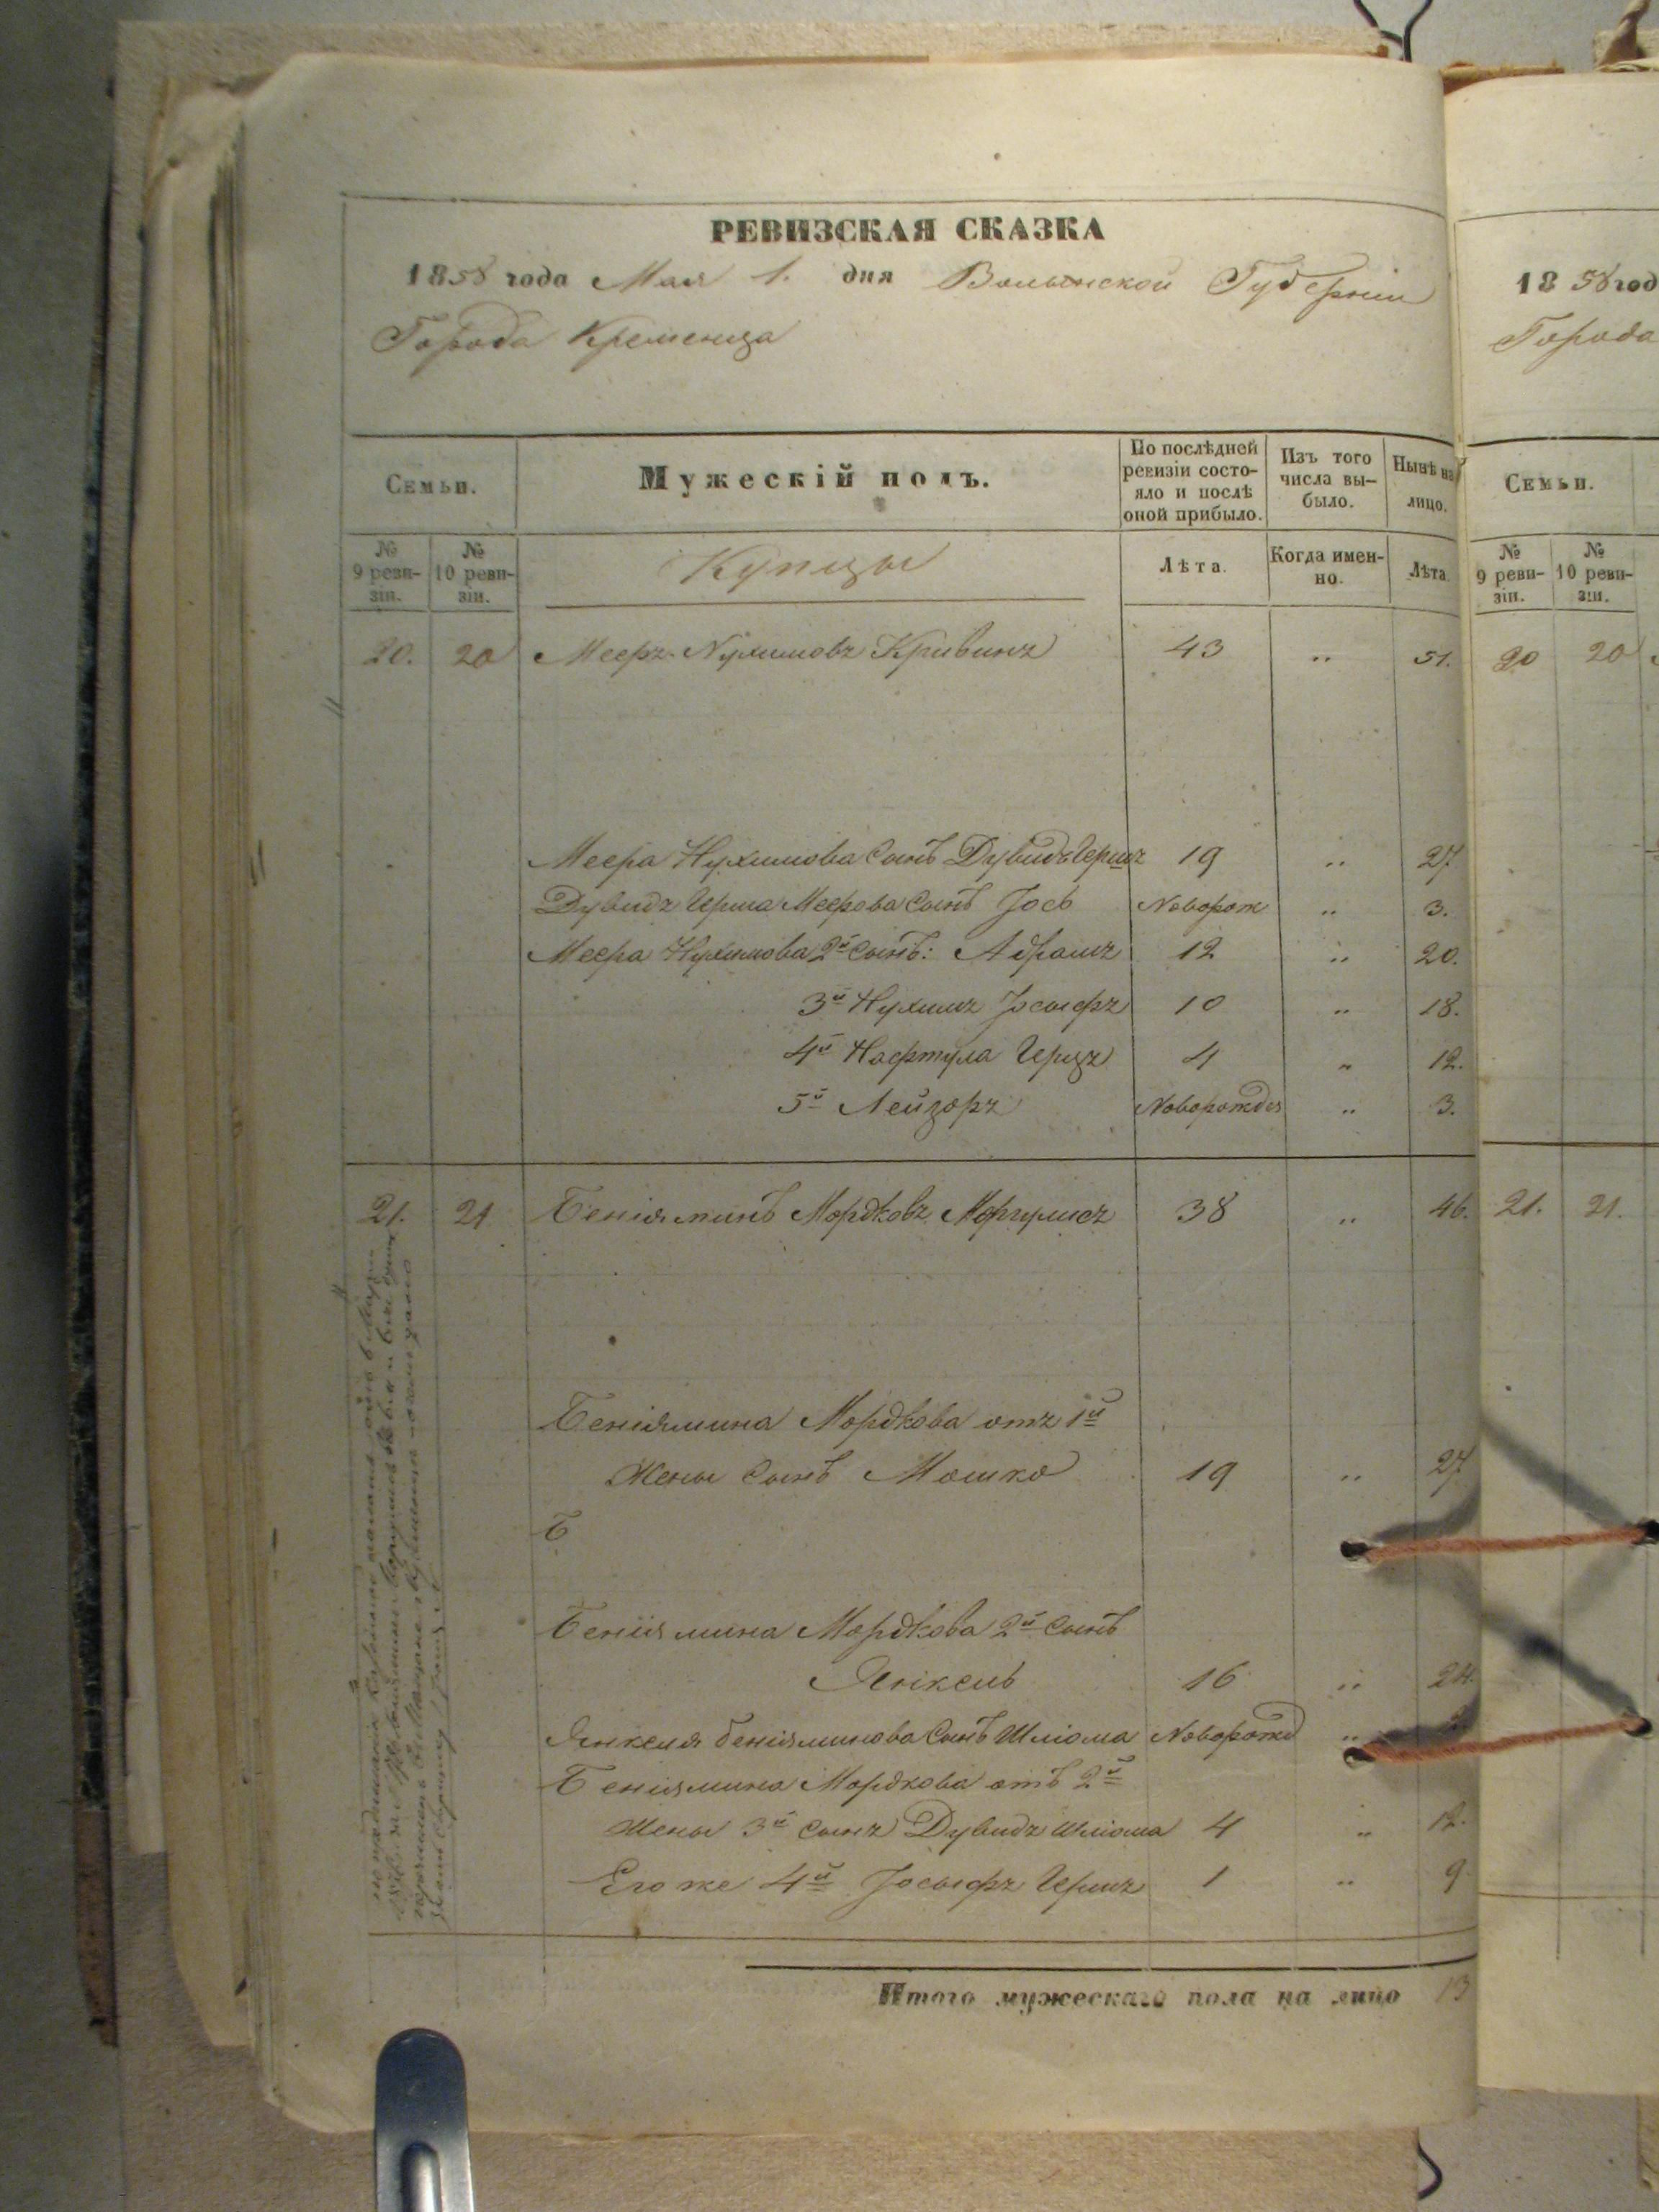 РЕВИЗСКАЯ СКАЗКА
1858 года Мая 1. дня Волынской Губерніи
Города Кременца
Семьи.
Мужескій полъ.
По послѣдней ревизіи состо-
яло и послѣ
оной прибыло.
Изъ того
числа вы-
было.
Нынѣ на
лицо.
№
9 реви-
зіи.
№
10 реви-
зіи.
Купцы
Лѣта.
Когда имен-
но.
Лѣта
20. 20 Мееръ Нухимовъ Кривинъ 43 „ 51.
Меера Нухимова Сынъ Дувидъ Гершъ 19 „ 27
Дувидъ Герша Меерова Сынъ Іось Новорож „ 3.
Меера Нухимова 2й Сынъ: Абрамъ 12 „ 20.
3й Нухимъ Іосифъ 10 „ 18.
4й Нафтула Герцъ 4 „ 12.
5й Лейзоръ Новорожден „ 3.
21. 21 Беніяминъ Мордковъ Моргулисъ 38 „ 46.
Беніямина Мордкова отъ 1й
Жены Сынъ Мошко 19 „ 27
Б
Беніямина Мордкова 2й Сынъ
Янкель 16 „ 24.
Янкеля Беніяминова Сынъ Шліома Новорожд „
Беніямина Мордкова отъ 2й
Жены 3й Сынъ Дувидъ Шліома 4 „ 12.
Его же 4й Іосифъ Гершъ 1 „ 9
Итого мужескаго пола на лицо 13
18 58 год
Города
Семьи.
№
9 реви-
зіи.
№
10 реви-
зіи.
20 20
21. 21.